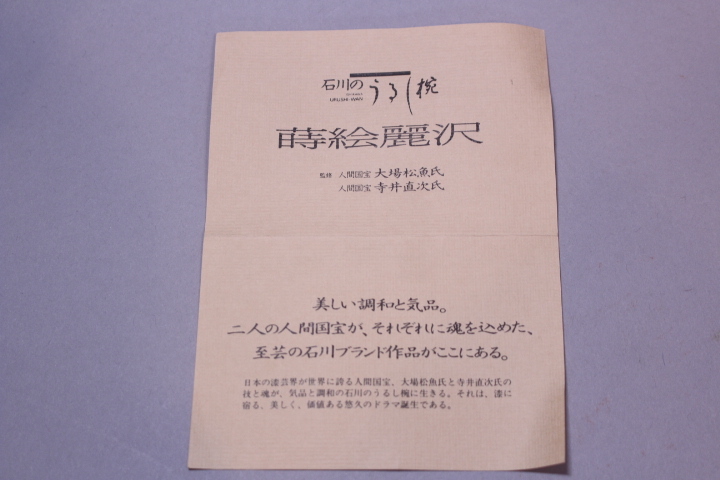 石川のうるし椀
URUSHI-WAN
蒔絵麗沢
監修 人間国宝 大場松魚氏
人間国宝 寺井直次氏
美しい調和と気品。
二人の人間国宝が、それぞれに魂を込めた、
至芸の石川ブランド作品がここにある。
日本の漆芸界が世界に誇る人間国宝、大場松魚氏と寺井直次氏の
技と魂が、気品と調和の石川のうるし椀に生きる。それは、漆に
宿る、美しく、価値ある悠久のドラマ誕生である。